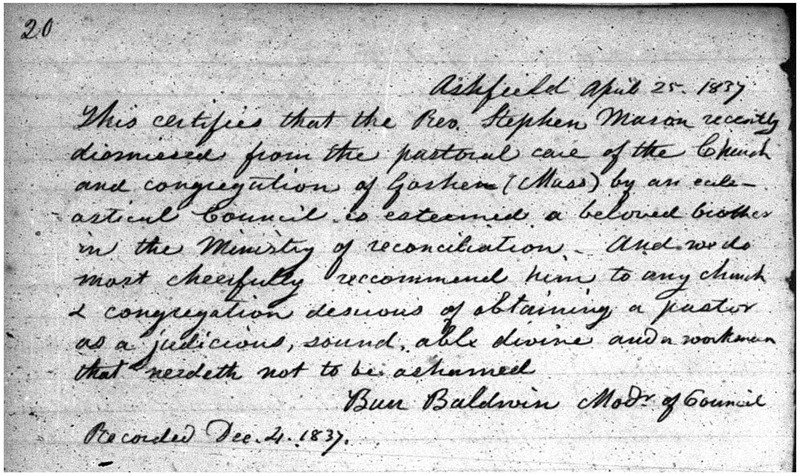 20
Ashfield April 25. 1837
This certifies that the Rev. Stephen Mason recently
dismissed from the pastoral care of the Church
and congregation of Goshen (Mass) by an ecle-
astical Council is esteemed a beloved brother
in the Ministry of reconciliation - And we do
most cheerfully reccommend him to any church
& congregation desious of obtaining a pastor
as a judicious, sound, able divine and a workman
that needeth not to be ashamed
Burr Baldwin Modr. of Council
Recorded Dec. 4. 1837.